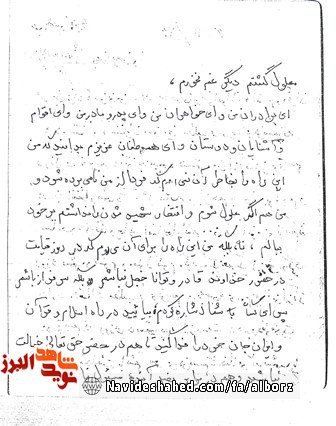 معلول گشتم دیگر غم نخورم ،
ای برادران من و ای خواهران من و ای پدر و مادر من و ای اقوام
و آشنایان و دوستان و ای هموطنان عزیزم بدانید که من
این راه را بخاطر آن نمی‌روم که فردا از من نامی بوده شود و
من هم اگر معلول شوم و افتخار شهید شدن را نداشتم بر خود
ببالم ، نه بلکه من این راه را برای آن می‌روم که در روز قیامت
در حضور خداوند قادر و توانا خجل نباشم بلکه سرفراز باشم
پس ای که به شما اشاره کردم بیائید در راه اسلام و قرآن
و ایران جان خود را فدا کنید تا هم در حضور حق تعالی خجالت
شاهد
نوید
البرز
Navideshahed.com/fa/alborz